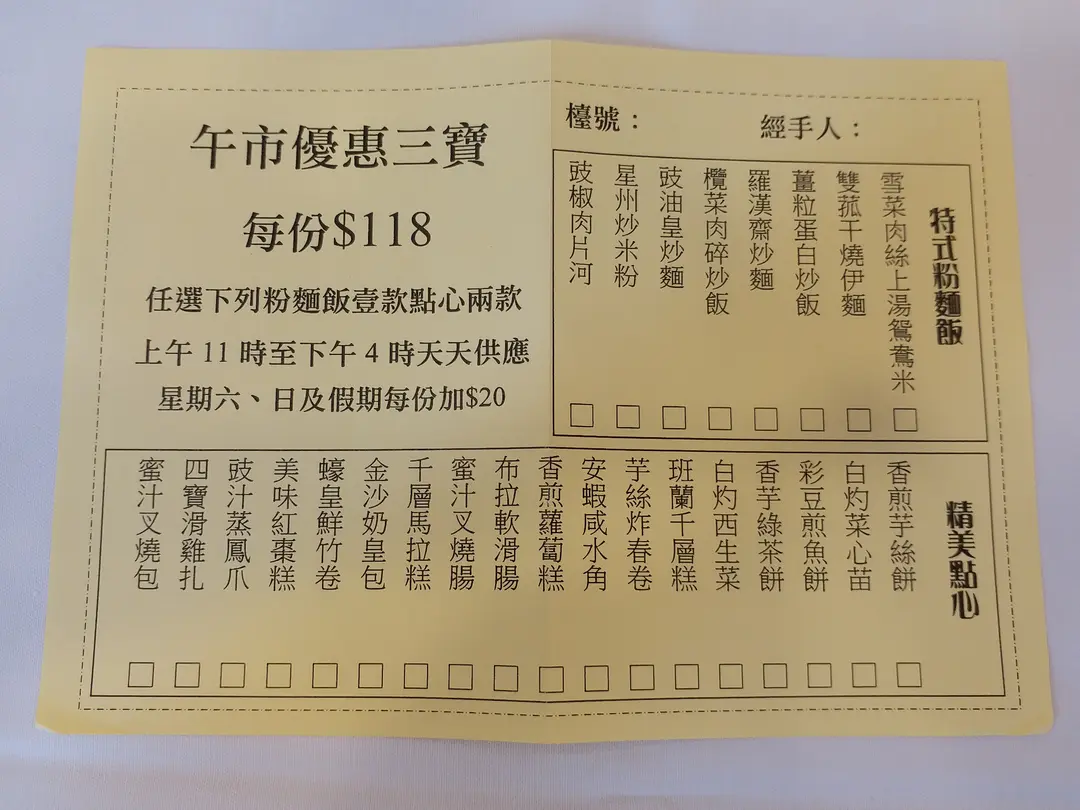 午市優惠三寶
每份$118
任選下列粉麵飯壹款點心兩款
上午 11 時至下午 4 時天天供應
星期六、日及假期每份加$20
檯號：
經手人：
特式粉麵飯
雪菜肉絲上湯鴛鴦米
雙菰干燒伊麵
薑粒蛋白炒飯
羅漢齋炒麵
欖菜肉碎炒飯
豉油皇炒麵
星州炒米粉
豉椒肉片河
精美點心
香煎芋絲餅
白灼菜心苗
彩豆煎魚餅
香芋綠茶餅
白灼西生菜
班蘭千層糕
芋絲炸春卷
安蝦咸水角
香煎蘿蔔糕
布拉軟滑腸
蜜汁叉燒腸
千層馬拉糕
金沙奶皇包
蠔皇鮮竹卷
美味紅棗糕
豉汁蒸鳳爪
四寶滑雞扎
蜜汁叉燒包